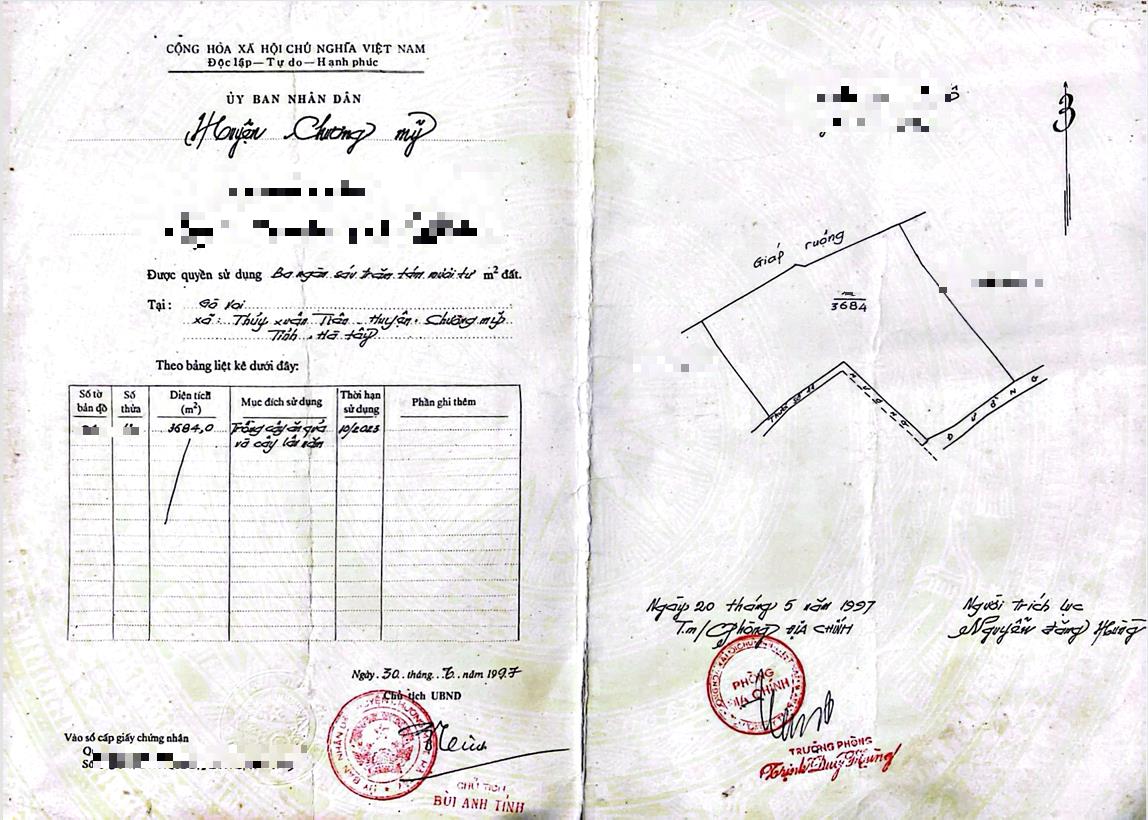 CỘNG HÒA XÃ HỘI CHỦ NGHĨA VIỆT NAM
Độc lập—Tự do—Hạnh phúc
ỦY BAN NHÂN DÂN
Huyện Chương mỹ
Được quyền sử dụng Ba ngàn sáu trăm tám mươi tư m² đất.
Tại: Gò Voi
xã: Thủy xuân Tiên Huyện Chương mỹ
Tỉnh Hà tây
Theo bảng liệt kê dưới đây:
Số tờ bản đồ Số thửa Diện tích (m²) Mục đích sử dụng Thời hạn sử dụng Phần ghi thêm
3684,0 Trồng cây ăn quả 10/2023
và cây lâu năm
Ngày 30 tháng 6 năm 1997
Chủ tịch UBND
Vào sổ cấp giấy chứng nhận
CHỦ TỊCH
BÙI ANH TỈNH
Giáp ruộng
3684
ĐƯỜNG
Ngày 20 tháng 5 năm 1997
T.m/ Phòng ĐỊA CHÍNH
PHÒNG
ĐỊA CHÍNH
TRƯỞNG PHÒNG
Trịnh Duy Hùng
Người trích lục
Nguyễn đăng Hùng